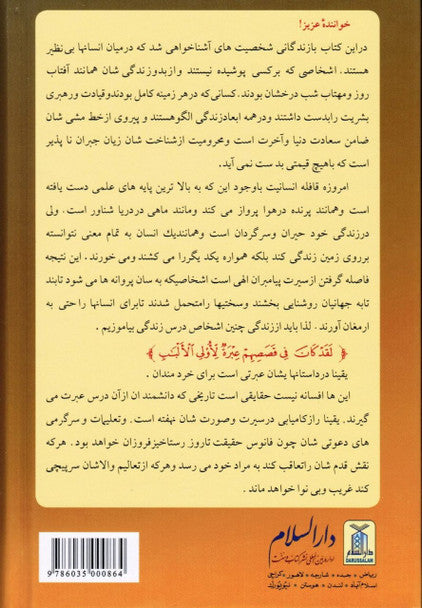 خوانندۀ عزیز!
دراین کتاب بازندگانی شخصیت های آشناخواهی شد که درمیان انسانها بی‌نظیر
هستند. اشخاصی که برکسی پوشیده نیستند وازبدوزندگی شان همانند آفتاب
روز ومهتاب شب درخشان بودند. کسانی که در هر زمینه کامل بودندوقیادت ورهبری
بشریت رابدست داشتند ودرهمه ابعادزندگی الگوهستند و پیروی ازخط مشی شان
ضامن سعادت دنیا وآخرت است ومحرومیت ازشناخت شان زیان جبران نا پذیر
است که باهیچ قیمتی بد ست نمی آید.
امروزه قافله انسانیت باوجود این که به بالا ترین پایه های علمی دست یافته
است وهمانند پرنده درهوا پرواز می کند ومانند ماهی دردریا شناور است. ولی
درزندگی خود حیران وسرگردان است وهمانندیك انسان به تمام معنی نتوانسته
برروی زمین زندگی کند بلکه همواره یکد یگررا می کشند ومی خورند. این نتیجه
فاصله گرفتن ازسیرت پیامبران الهی است اشخاصیکه به سان پروانه ها می شود تابند
تابه جهانیان روشنایی بخشند وسختیها رامتحمل شدند تابرای انسانها راحتی به
ارمغان آورند. لذا باید اززندگی چنین اشخاص درس زندگی بیاموزیم.
﴿ لَقَدْ كَانَ فِي قَصَصِهِمْ عِبْرَةٌ لِّأُوْلِي الْأَلْبَٰبِ ﴾
یقینا درداستانها یشان عبرتی است برای خرد مندان.
این ها افسانه نیست حقایقی است تاریخی که دانشمند ان ازآن درس عبرت می
گیرند. یقینا رازکامیابی درسیرت وصورت شان نهفته است. وتعلیمات و سرگرمی
های دعوتی شان چون فانوس حقیقت تاروز رستاخیزفروزان خواهد بود. هرکه
نقش قدم شان راتعاقب کند به مراد خود می رسد وهرکه ازتعالیم والاشان سرپیچی
کند غریب وبی نوا خواهد ماند.
دارالسلام
DARUSSALAM
ریاض • جدہ • شارجہ • لاہور • کراچی
اسلام آباد • لندن • ہیوسٹن • نیویارک
9 786035 000864